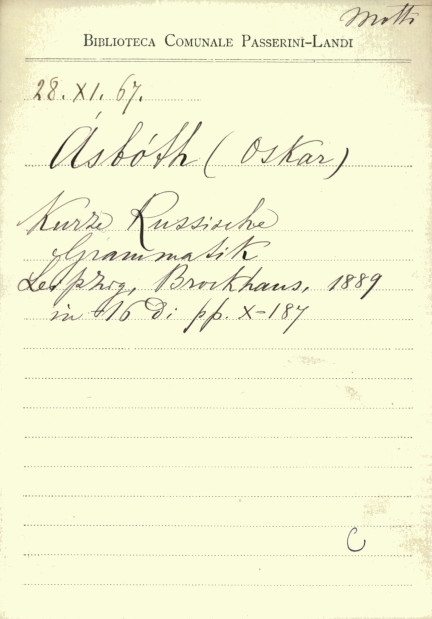 Motti
BIBLIOTECA COMUNALE PASSERINI-LANDI
28. XI. 67.
Ásbóth (Oskar)
Kurze Russische
Grammatik
Leipzig, Brockhaus, 1889
in 16 di pp. X-187
C